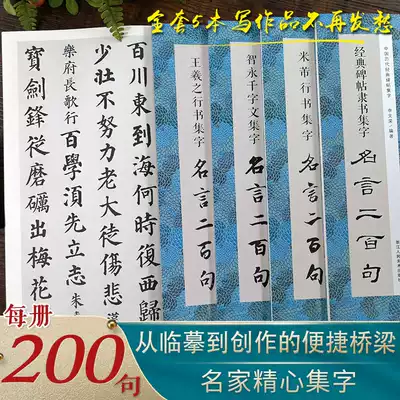 全套5本 写作品不再发愁
百川東到海何時復西歸
少壯不努力老大徒傷悲 漢
樂府長歌行 百學須先立志 朱
寶劍鋒從磨礪出梅花
王羲之行书集字
名言二百句
智永千字文集字
名言二百句
米芾行书集字
名言二百句
经典碑帖隶书集字
名言二百句
中国历代经典碑帖集字
每册
200句
从临摹到创作的便捷桥梁
名家精心集字